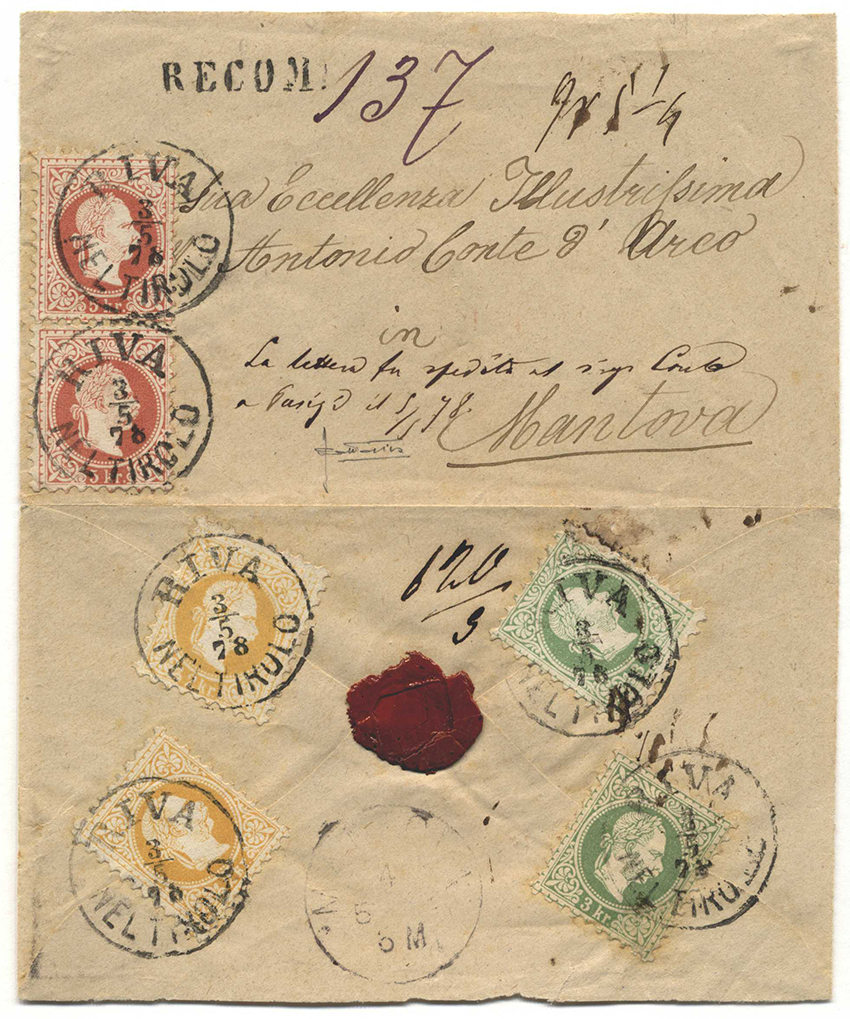 RECOM.
137
Sua Eccellenza Illustrissima
Antonio Conte d' Arco
in
La lettera fu spedita al sigr Conte
a Parigi il 5/5 78.
Mantova
RIVA
3/5
78
NEL TIROLO
5 kr.
RIVA
3/5
78
NEL TIROLO
RIVA
3/5
78
NEL TIROLO
RIVA
3/5
78
NEL TIROLO
620
9
RIVA
3/5
78
NEL TIROLO
RIVA
3/5
78
NEL TIROLO
3 kr.
4
5
6 M